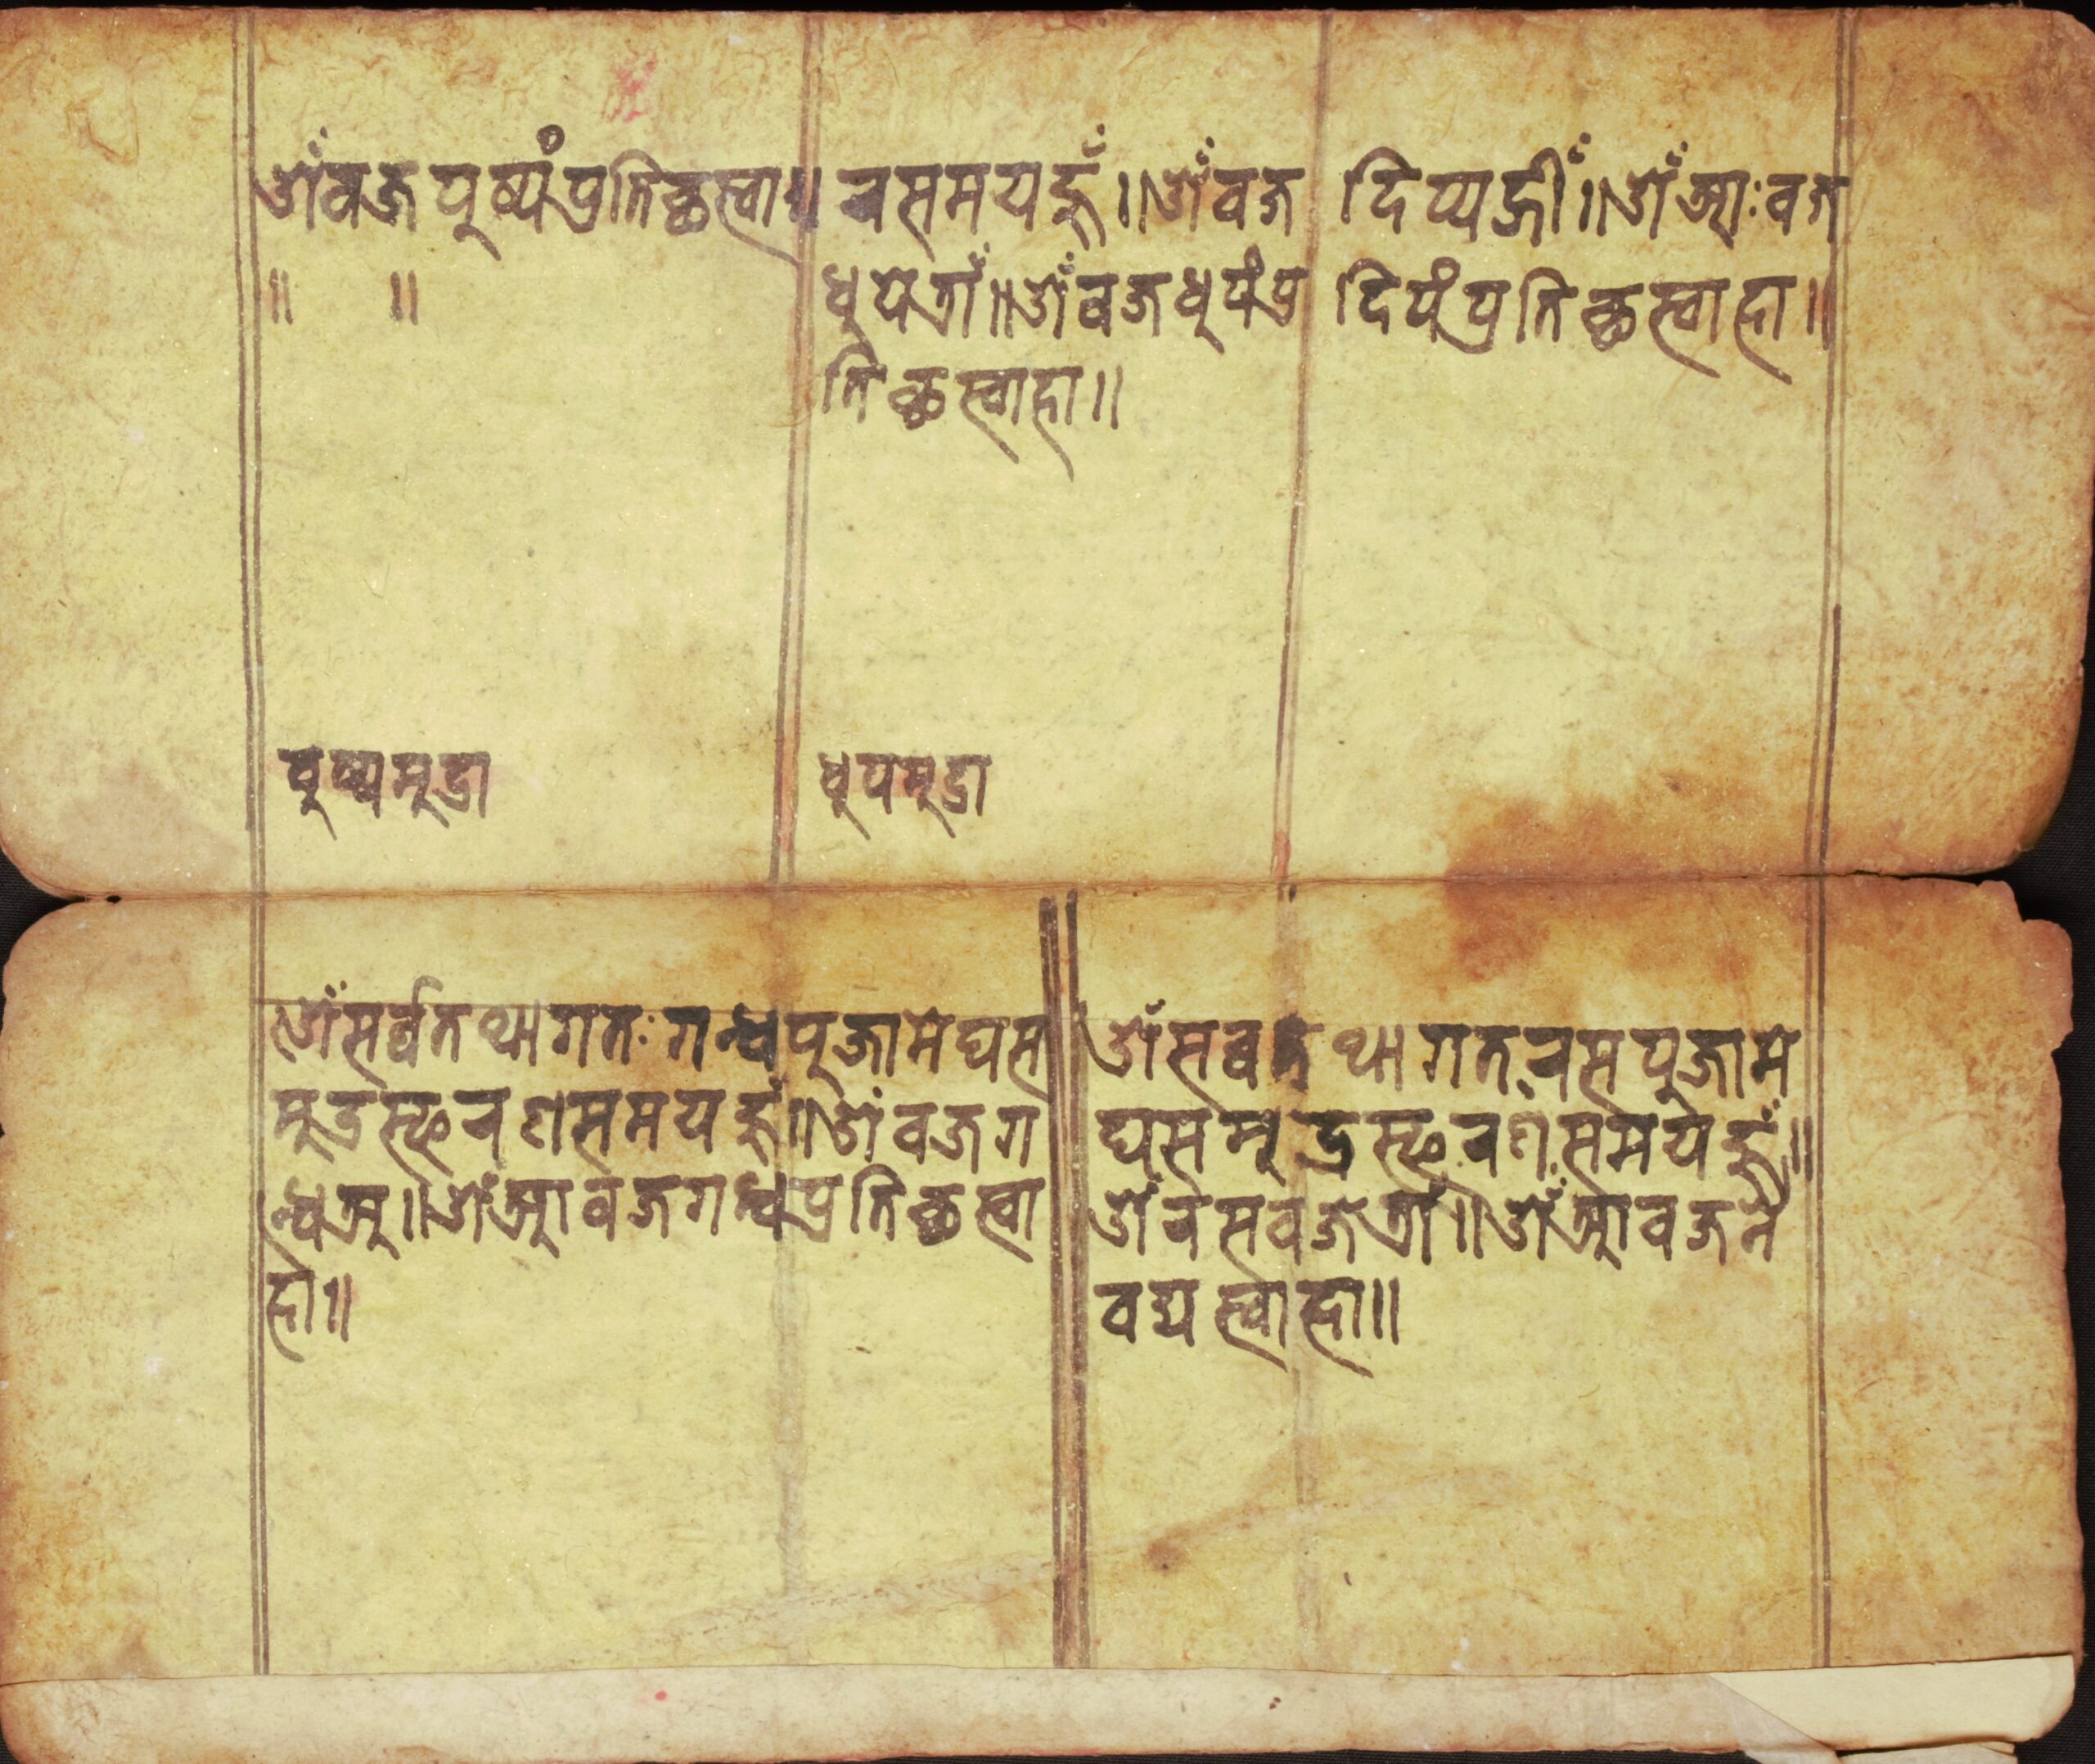 ॐ वज्र पुष्पं प्रतिच्छ स्वाहा
॥ ॥
रसमयहूँ॥ ॐ वज्र
धुपे त्राँ॥ ॐ वज्र धुपं प्र
तिच्छ स्वाहा॥
दिप्य ह्रीँ॥ ॐ आः वज्र
दिपं प्रतिच्छ स्वाहा॥
पुष्पमुद्रा
धुपमुद्रा
ॐ सर्व्वतथागतः गन्धपूजामेघस
मुद्रस्फरणसमयहूँ॥ ॐ वज्रग
न्धअ॥ ॐ आ वज्रगन्धप्रतिच्छ स्वा
हा॥
ॐ सर्व्वतथागतरसपुजामे
घसमुद्रस्फरणसमयेहूँ॥
ॐ रसवज्रे त्राँ॥ ॐ आ वज्र नै
वद्य स्वाहा॥